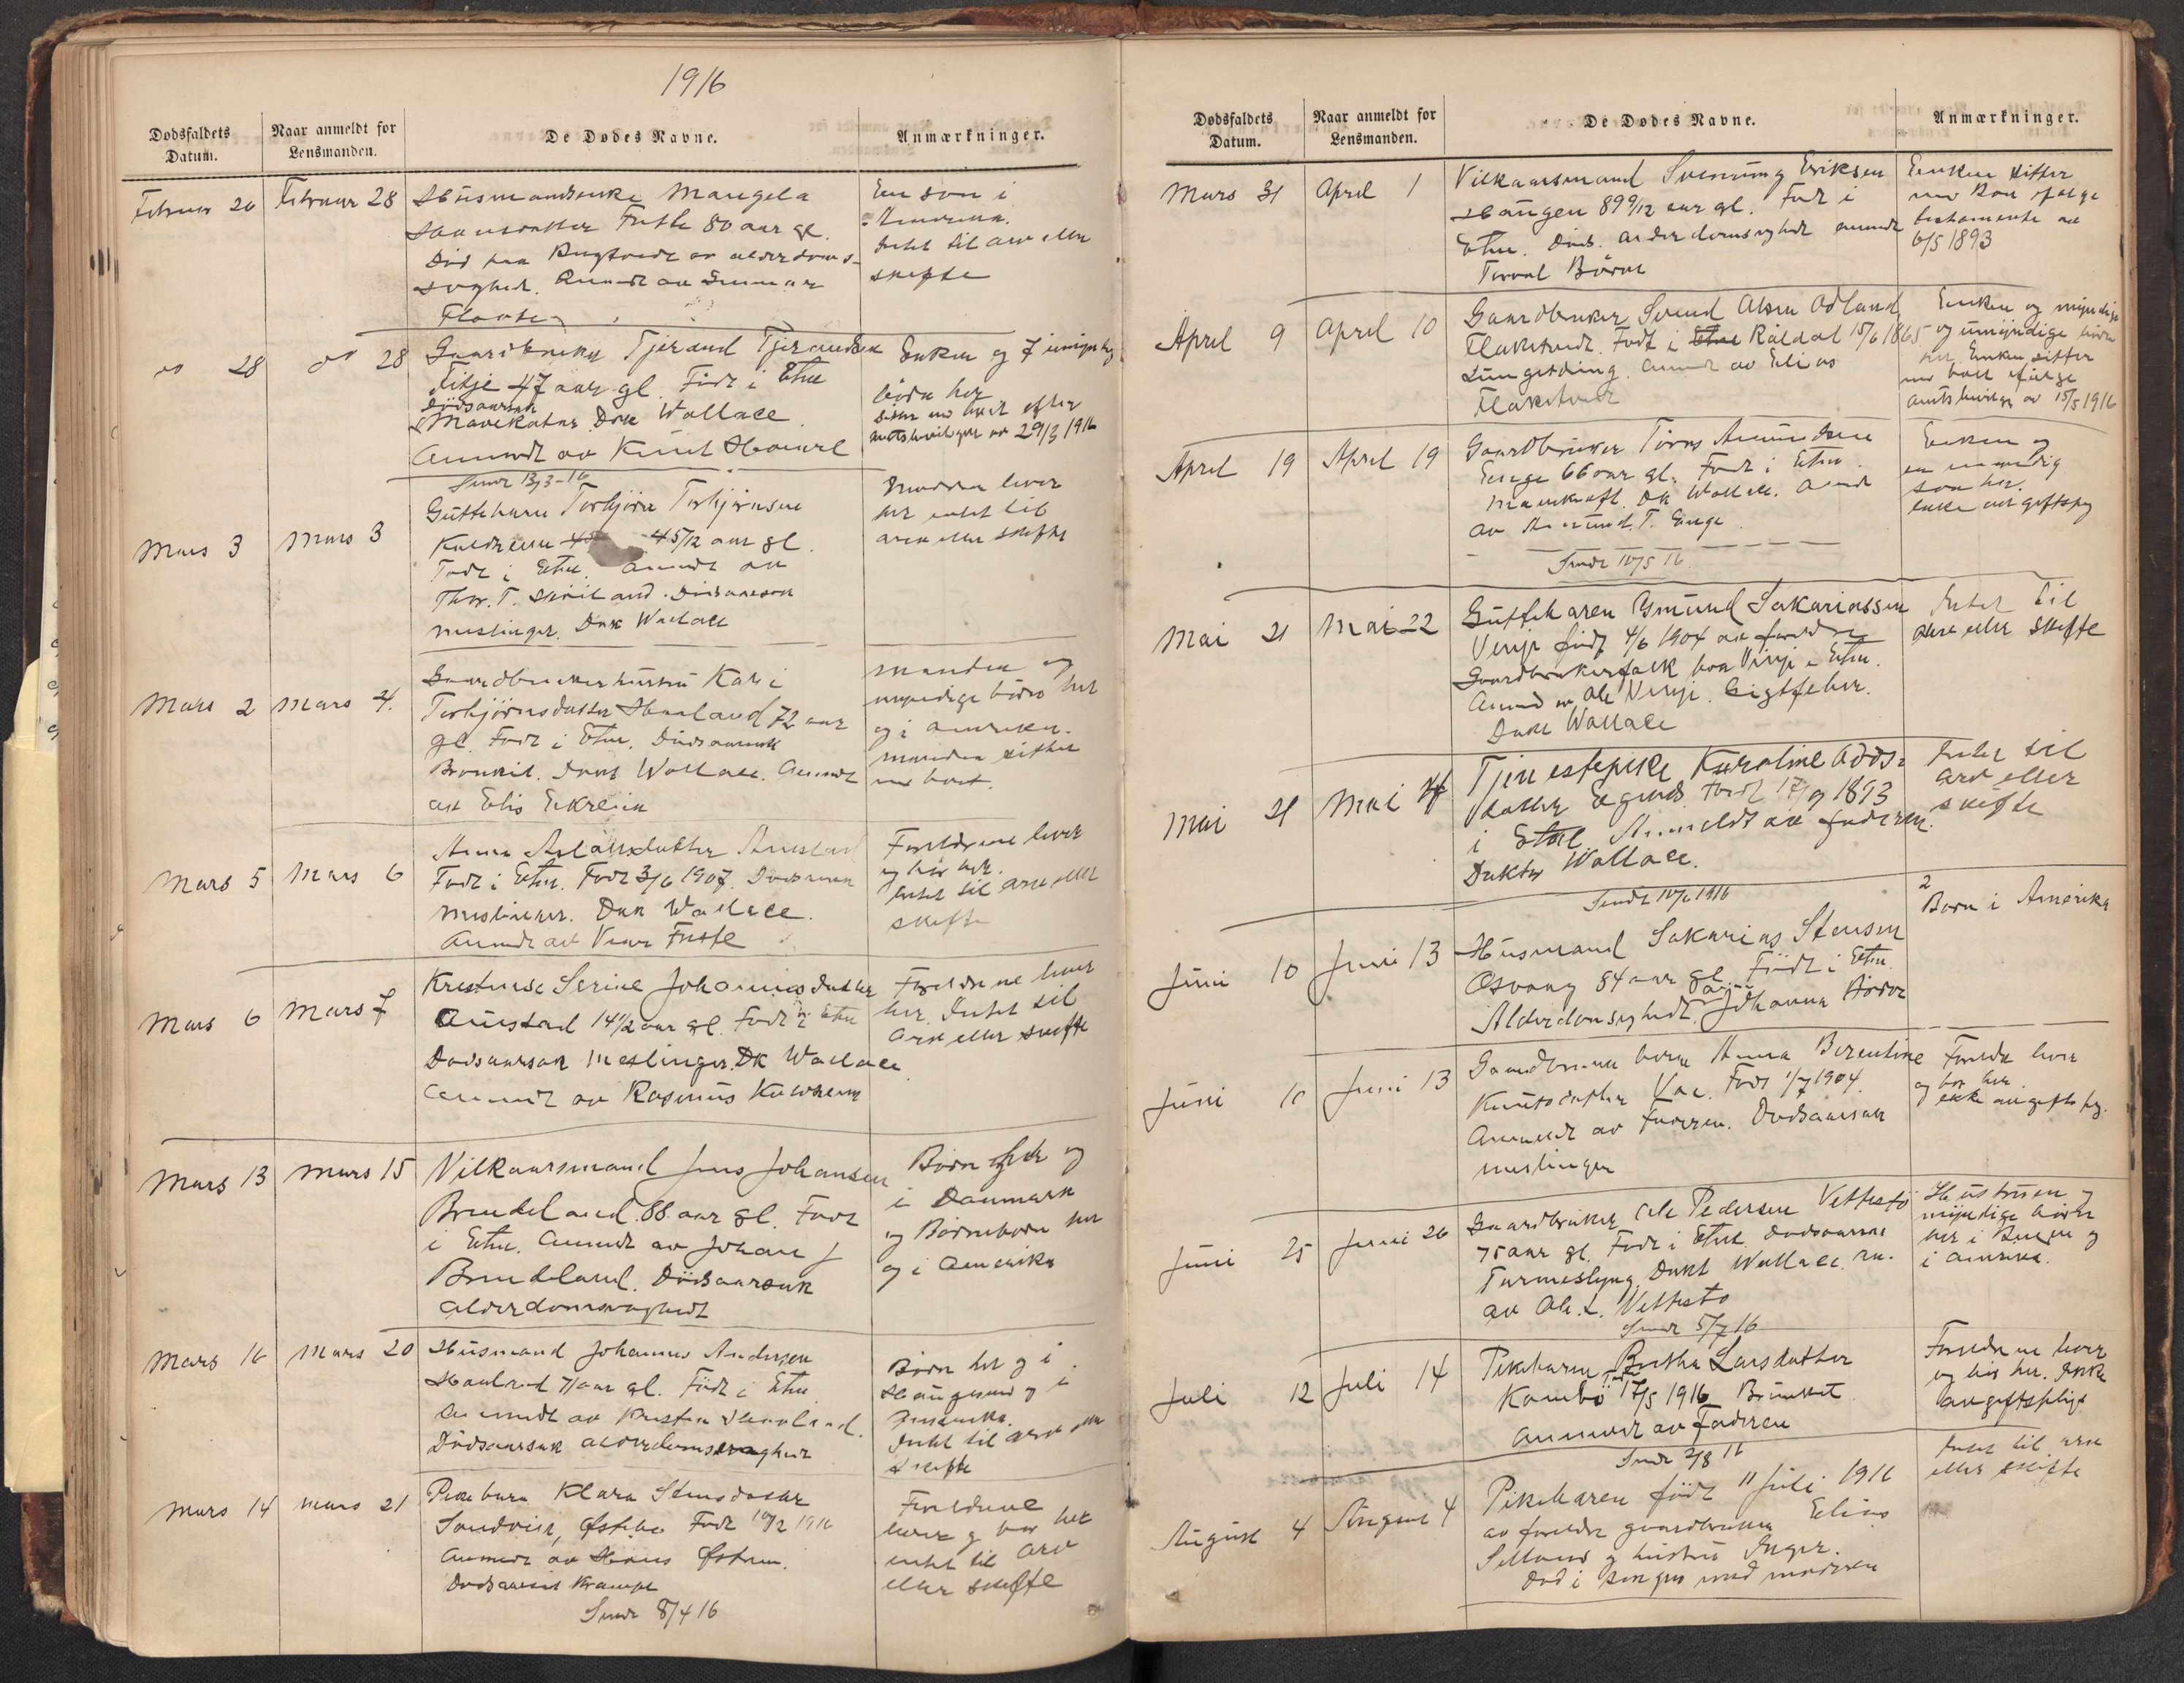 1916
Dødsfaldets Datum.
Naar anmeldt for Lensmanden.
De Dødes Navne.
Anmærkninger.
Februar 26
Februar 28
Husmandsenke Mangela
Fuste 80 aar gl.
Død paa av alderdoms-
svaghed. Anmeldt av Gunnar
Fløgstad
En son i
Amerika.
Intet til arv eller
skifte
do 28
do 28
Gaardbruker Tjerand Tjerandsen
47 aar gl. Født i Etne
Dødsaarsak
Mavekatar Dok Wallace
Anmeldt av Knut Haaverl
Enken og 7 umyndig
børn her
sitter med boet efter
29/3 1916
Sendt 13/3-16
Mars 3
Mars 3
Guttebarn Torbjørn Torbjørnsen
Kaldheim 4 5/12 aar gl.
Født i Etne. Anmeldt av
Thor. T. Skoiland. Dødsaarsak
meslinger. Dok Wallace
Moderen lever
her intet til
arv eller skifte
Mars 2
Mars 4.
Gaardbrukerhustru Kari
Torbjørnsdatter Haaland 72 aar
gl. Født i Etne. Dødsaarsak
Bronkit. Dokt Wallace. Anmeldt
av Elis Eikreim
Manden og
myndige børn her
og i Amerika.
Manden sitter
med boet.
Mars 5
Mars 6
Anna Aslaksdatter Austad
Født i Etne. Født 3/6 1907. Dødsaarsak
meslinger. Dok Wallace.
Anmeldt av Fuste
Foreldrene lever
og bor her.
Intet til arv eller
skifte
Mars 6
Mars 7
Kristense Serine Johannesdatter
Austad 14 1/2 aar gl. Født i Etne
Dødsaarsak Meslinger. Dk Wallace
Anmeldt av Rasmus Kaldheim
Foreldrene lever
her. Intet til
Arv eller skifte
Mars 13
Mars 15
Vilkaarsmand Jens Johansen
Brendeland 88 aar gl. Født
i Etne. Anmeldt av Johan J
Brendeland. Dødsaarsak
alderdomsvaghedt
Børn her og
i Danmark
og Børneborn her
og i Amerika
Mars 16
Mars 20
Husmand Johannes Andersen
Haaland 71 aar gl. Født i Etne
Anmeldt av Kristen Haaland.
Dødsaarsak alderdomssvaghed
Børn her og i
Haugesund og i
Amerika.
Intet til arv eller
skifte
Mars 14
Mars 21
Pikebarn Klara Stensdatter
Sandvik, Østebø Født 10/2 1916
Anmeldt av Hans
Dødsaarsak Krampe
Sendt 8/4 16
Foreldrene
lever og bor her
intet til arv
eller skifte
Dødsfaldets Datum.
Naar anmeldt for Lensmanden.
De Dødes Navne.
Anmærkninger.
Mars 31
April 1
Vilkaarsmand Svenung Eriksen
Haugen 89 9/12 aar gl. Født i
Etne. Døds. alderdomsvaghet anmeldt
Torval Børve
Enken sitter
med boet ifølge
testamente av
6/5 1893
April 9
April 10
Gaardbruker Svend Olsen Odland
Flaketvedt. Født i Etne Røldal 15/6 1865
Lungetæring. Anmeldt av Elias
Flaketvedt
Enken og myndige
og umyndige børn
her. Enken sitter
med boet ifølge
amtsbevilgn. av 15/5 1916
April 19
April 19
Gaardbruker Tørres Amundsen
Enge 66 aar gl. Født i Etne.
Mavekræft. Dk Wallace. Anmeldt
av Amund T. Enge
Enken og
en myndig
søn her.
ikke avgiftspl
Sendt 10/5 16
Mai 21
Mai 22
Guttebaren Gmund Sakariassen
Vinje født 4/6 1904 av foreldre
Gaardbrukerfolk paa Vinje i Etne.
Anmeldt av Ole Vinje. Gigtfeber.
Dokt Wallace
Intet til
arv eller skifte
Mai 21
Mai 24
Tjenestepike Karoline Odds-
datter Født 17/9 1893
i Etne Anmeldt av faderen.
Doktor Wallace.
Intet til
arv eller
skifte
Sendt 10/6 1916
Juni 10
Juni 13
Husmand Sakarias Stensen
Osvaag 84 aar gl. Født i Etne
Alderdomsvaghedt. av Johanna Børve
2
Børn i Amerika
Juni 10
Juni 13
Gaardbruker barn Anna Berentine
Knutsdatter Født 1/7 1904.
Anmeldt av Faderen. Dødsaarsak
meslinger
Foreldr lever
og bor her.
ikke avgiftspl.
Juni 25
Juni 26
Gaardbruker Ole Pedersen Vettestø
75 aar gl. Født i Etne Dødsaarsak
Tarmeslyng. Dokt Wallace. An.
av Ole. L. Vettestø
Hustruen og
myndige børn
her i Bergen og
i Amerika.
Sendt 5/7 16
Juli 12
Juli 14
Pikebarn Bertha Larsdatter
Kambo født 17/5 1916 Bronkit
Anmeldt av Faderen
Foreldrene lever
og bor her. Ikke
avgiftspligt
Sendt 2/8 16
August 4
August 4
Pikebaren født 11 Juli 1916
av foreldre gaardbruker Elias
og hustru Inger.
Død i sengen med moderen
Intet til arv
eller skifte